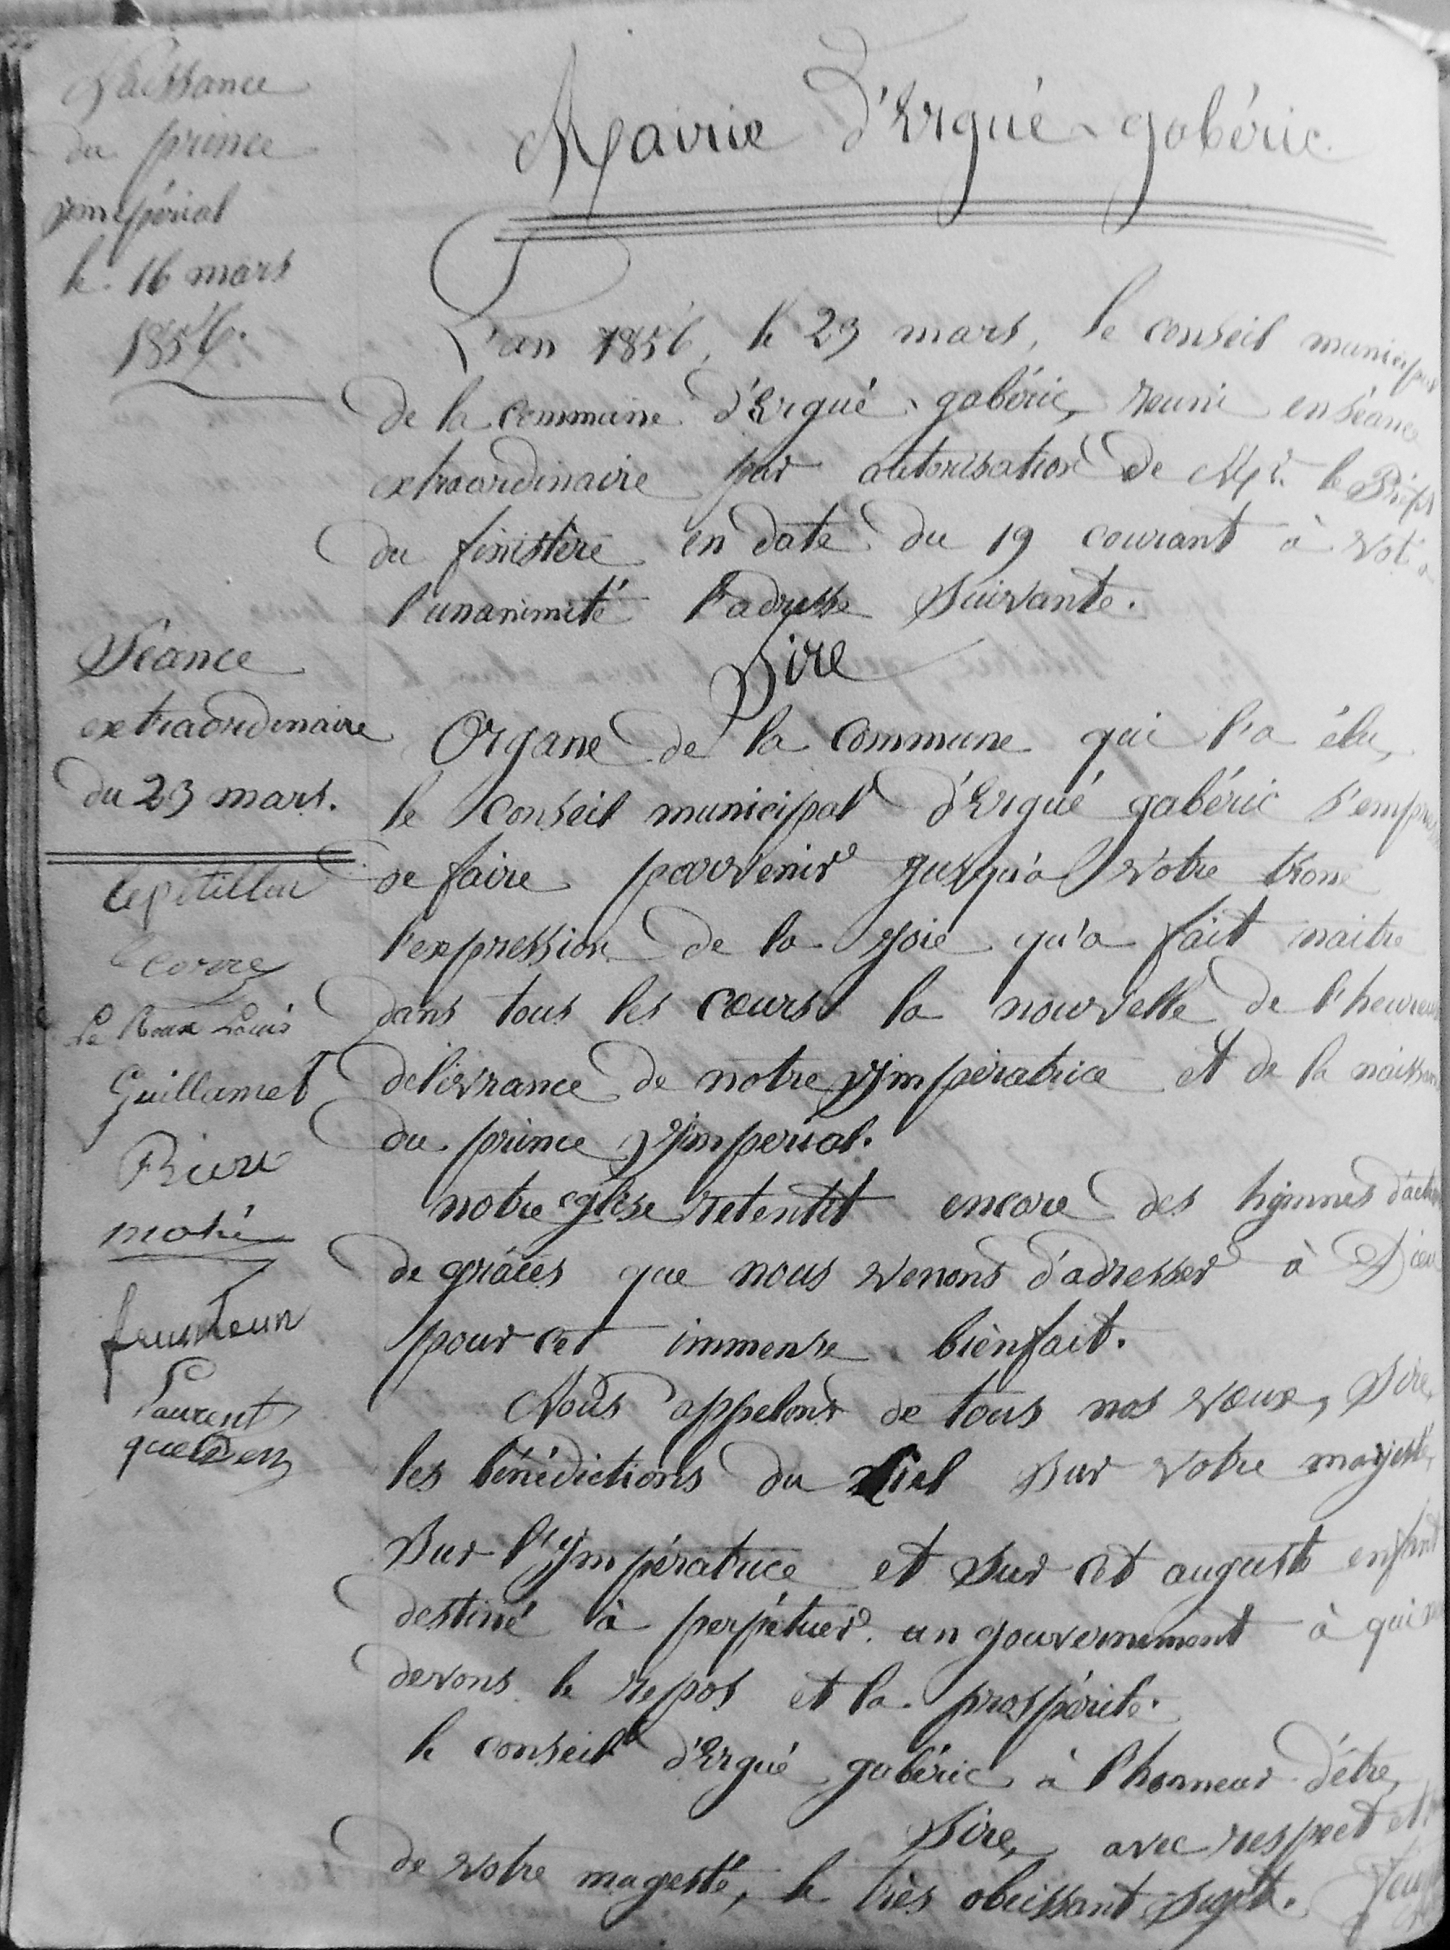 Naissance
du prince
ympérial
le 16 mars
1856.
Mairie d'Ergué-gabéric
L'an 1856, le 23 mars, le conseil municipal
de la commune d'Ergué-gabéric, reuni en séance
extraordinaire par autorisation de Mr. le Préfet
du finistère en date du 19 courant à voté à
l'unanimité l'adresse suivante.
Sire
Séance
extraordinaire
du 23 mars.
Organe de la commune qui l'a élu,
le Conseil municipal d'Ergué gabéric s'empresse
de faire parvenir jusqu'à votre trone
l'expression de la joie qu'a fait naitre
dans tous les cœurs la nouvelle de l'heureuse
délivrance de notre ympératrice et de la naissance
du prince ymperial.
notre église retentit encore des hymnes d'action
de grâces que nous venons d'adresser à Dieu
pour cet immense bienfait.
Nous appelons de tous nos vœux, Sire,
les bénédictions du Ciel sur votre majesté,
sur l'ympératrice et sur cet auguste enfant
destiné à perpétuer un gouvernement à qui
devons le repos et la prospérité.
le conseil d'Ergué gabéric à l'honneur d'être,
Sire, avec respect et
de votre magesté, le très obeissant sujet.
Lepétillon
Le Corre
Le Roux Louis
Guillamet
Riou
mahé
feunteun
Laurent
quelven